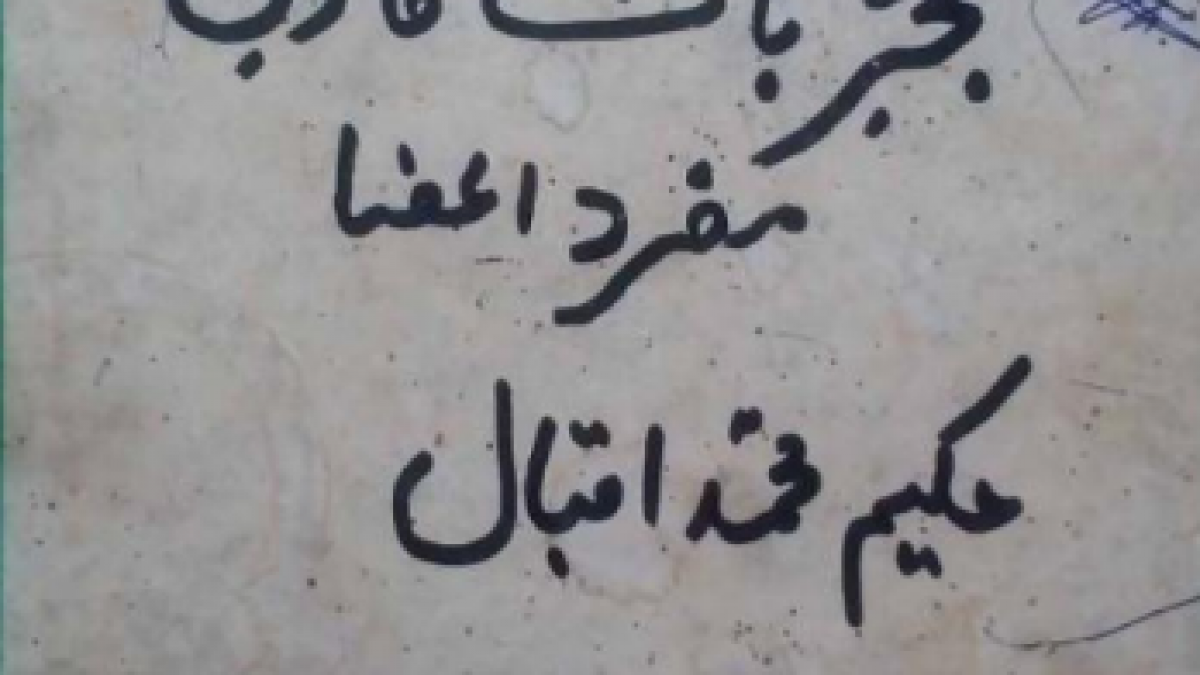 تجربات قانون
مفرد اعضا
حکیم محمد اقبال